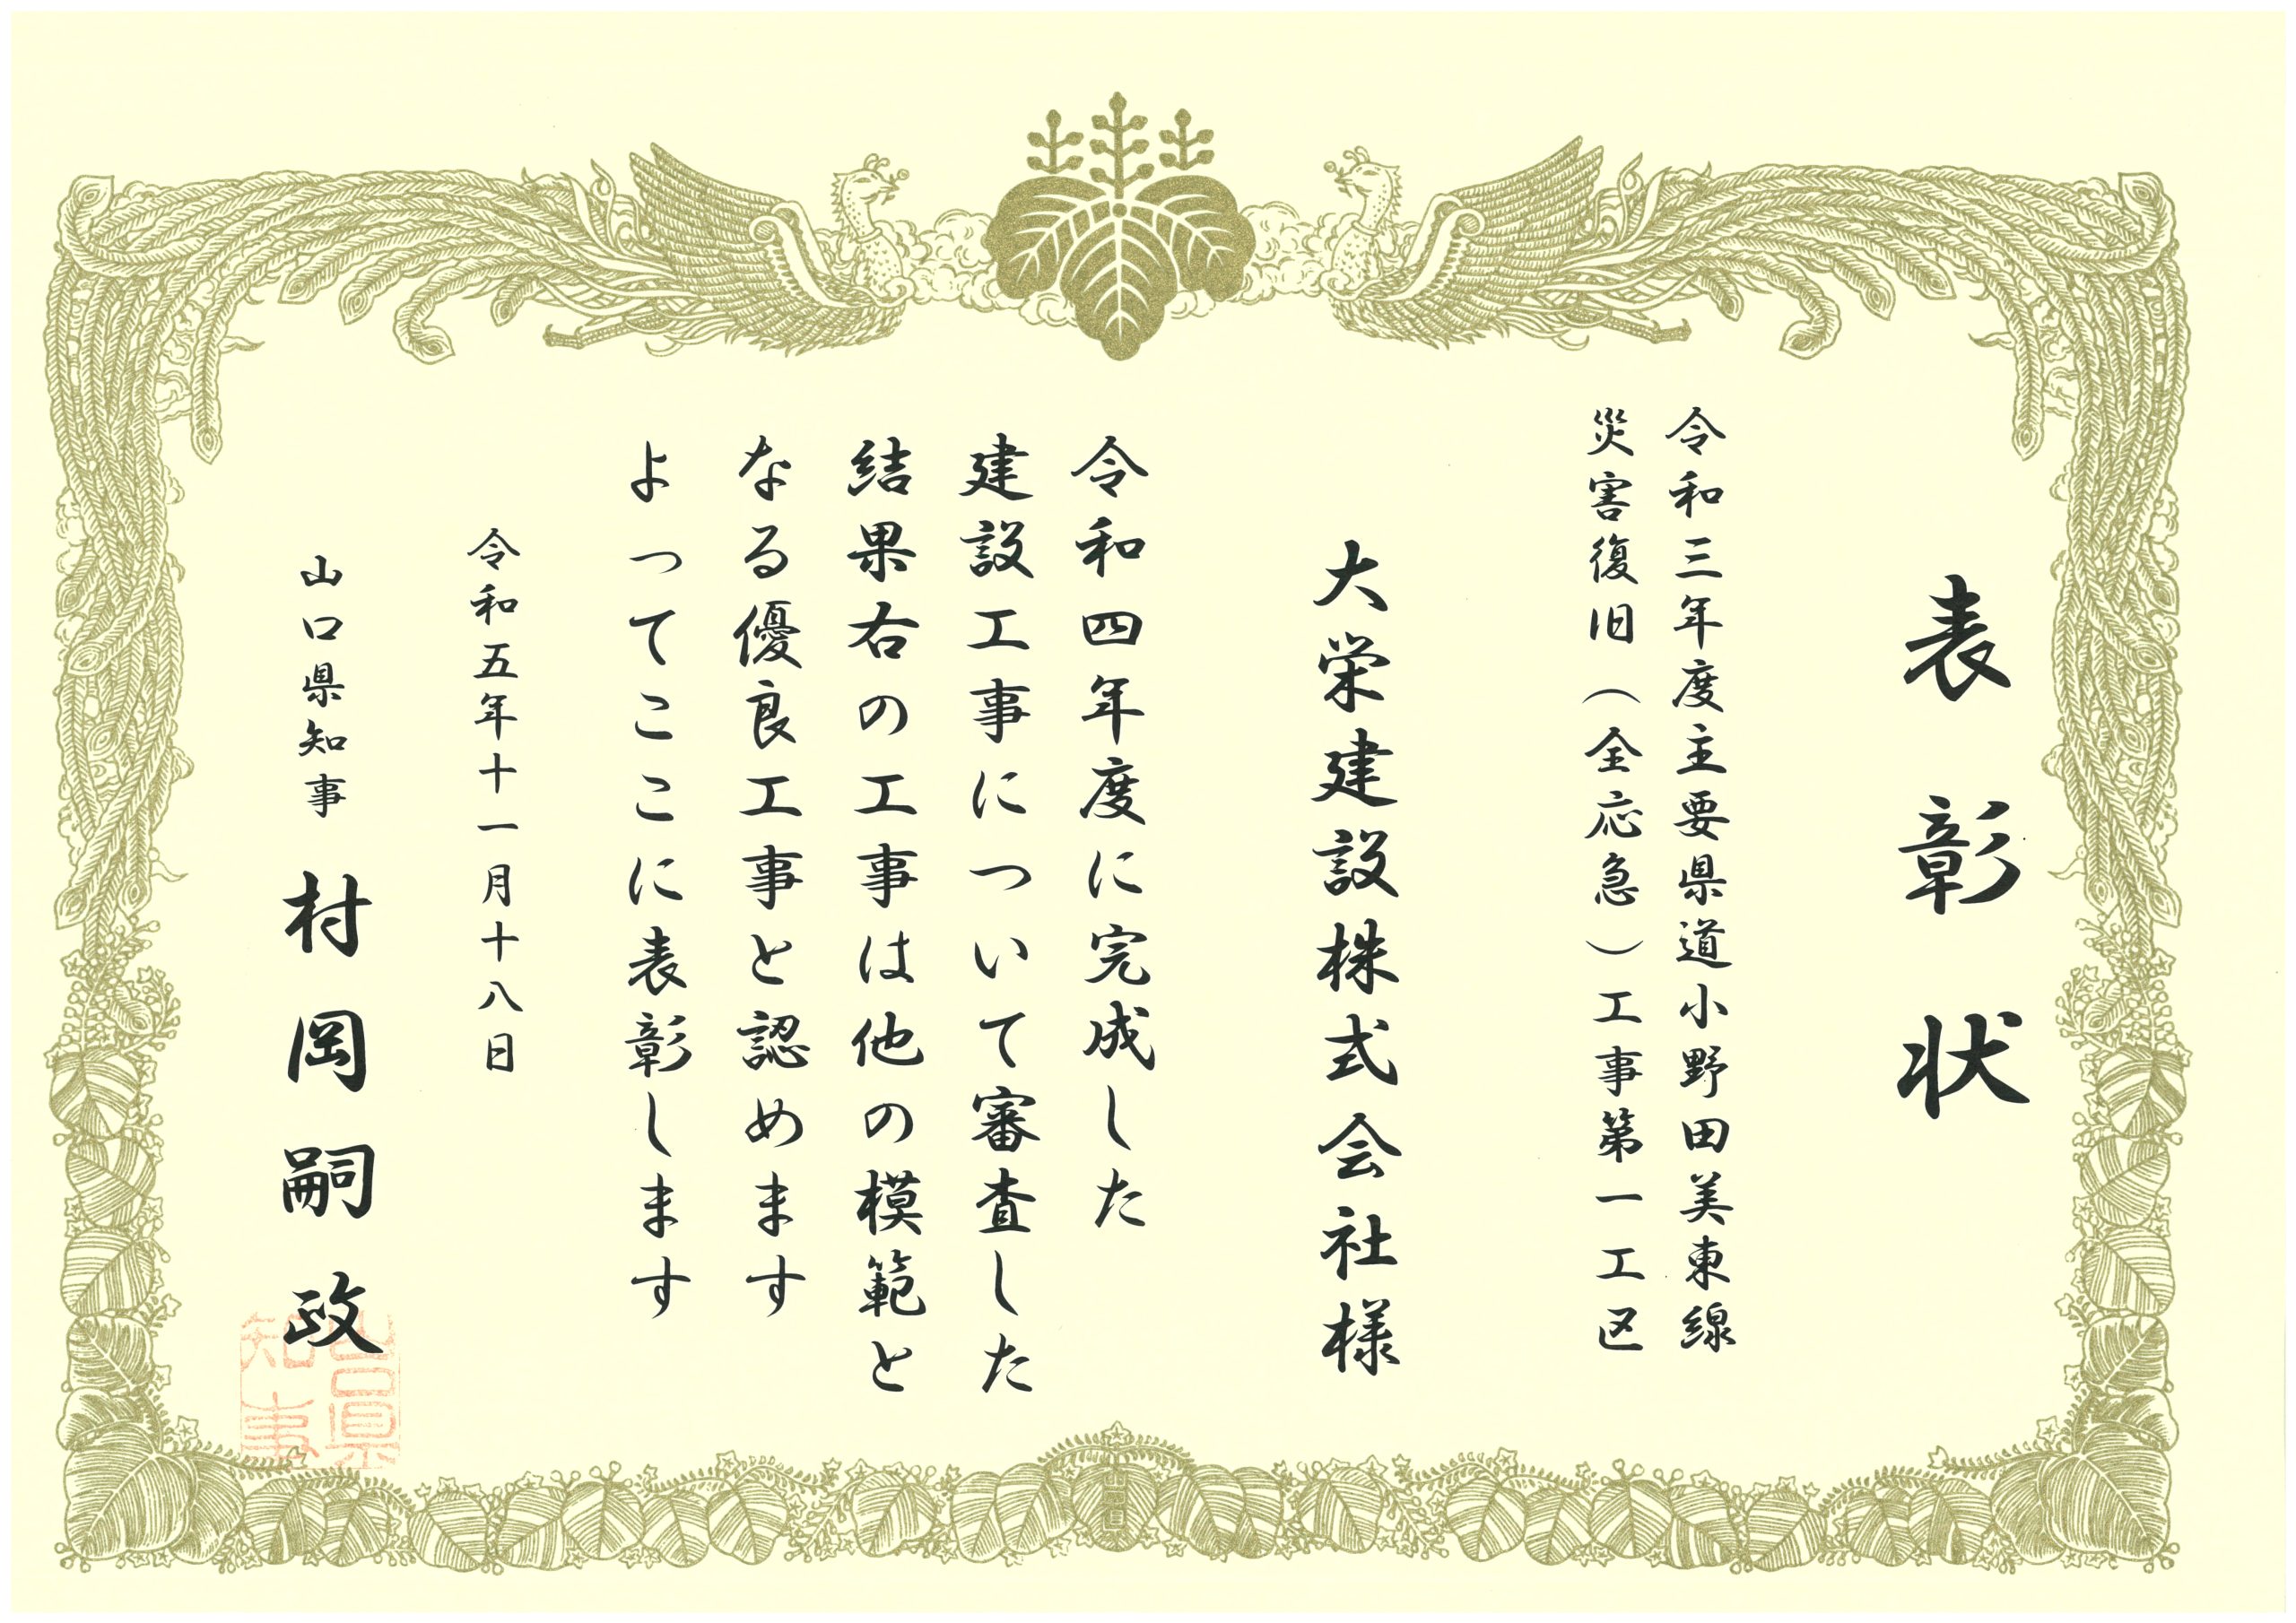 表彰状
令和三年度主要県道小野田美東線
災害復旧（全応急）工事第一工区
大栄建設株式会社様
令和四年度に完成した
建設工事について審査した
結果右の工事は他の模範と
なる優良工事と認めます
よってここに表彰します
令和五年十一月十八日
山口県知事 村岡嗣政
山口県
知事